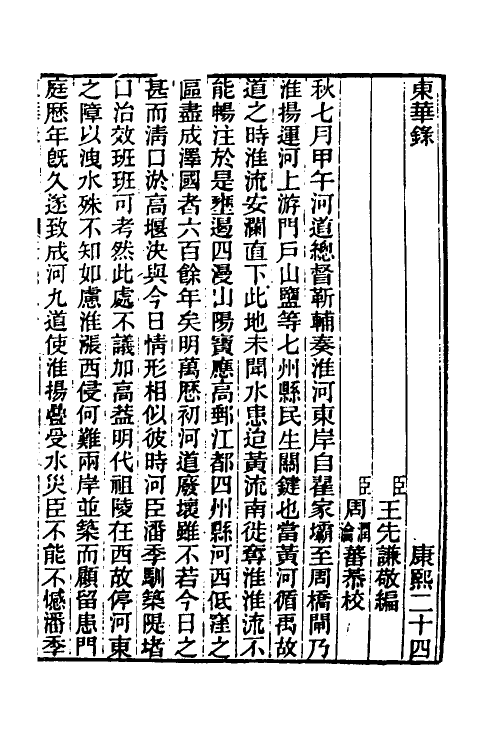 東華錄 康熙二十四
臣王先謙敬編
臣周潤蕃恭校
周瀹蕃恭校
秋七月甲午河道總督靳輔奏淮河東岸自翟家壩至周橋閘乃
淮揚運河上游門戶山鹽等七州縣民生關鍵也當黃河循禹故
道之時淮流安瀾直下此地未聞水患迨黃流南徙奪淮淮流不
能暢注於是壅遏四漫山陽寶應高郵江都四州縣河西低窪之
區盡成澤國者六百餘年矣明萬歷初河道廢壞雖不若今日之
甚而淸口淤高堰決與今日情形相似彼時河臣潘季馴築隄堵
口治效班班可考然此處不議加高葢明代祖陵在西故停河東
之障以洩水殊不知如慮淮漲西侵何難兩岸並築而顧留患門
庭歷年旣久遂致成河九道使淮揚疊受水災臣不能不憾潘季